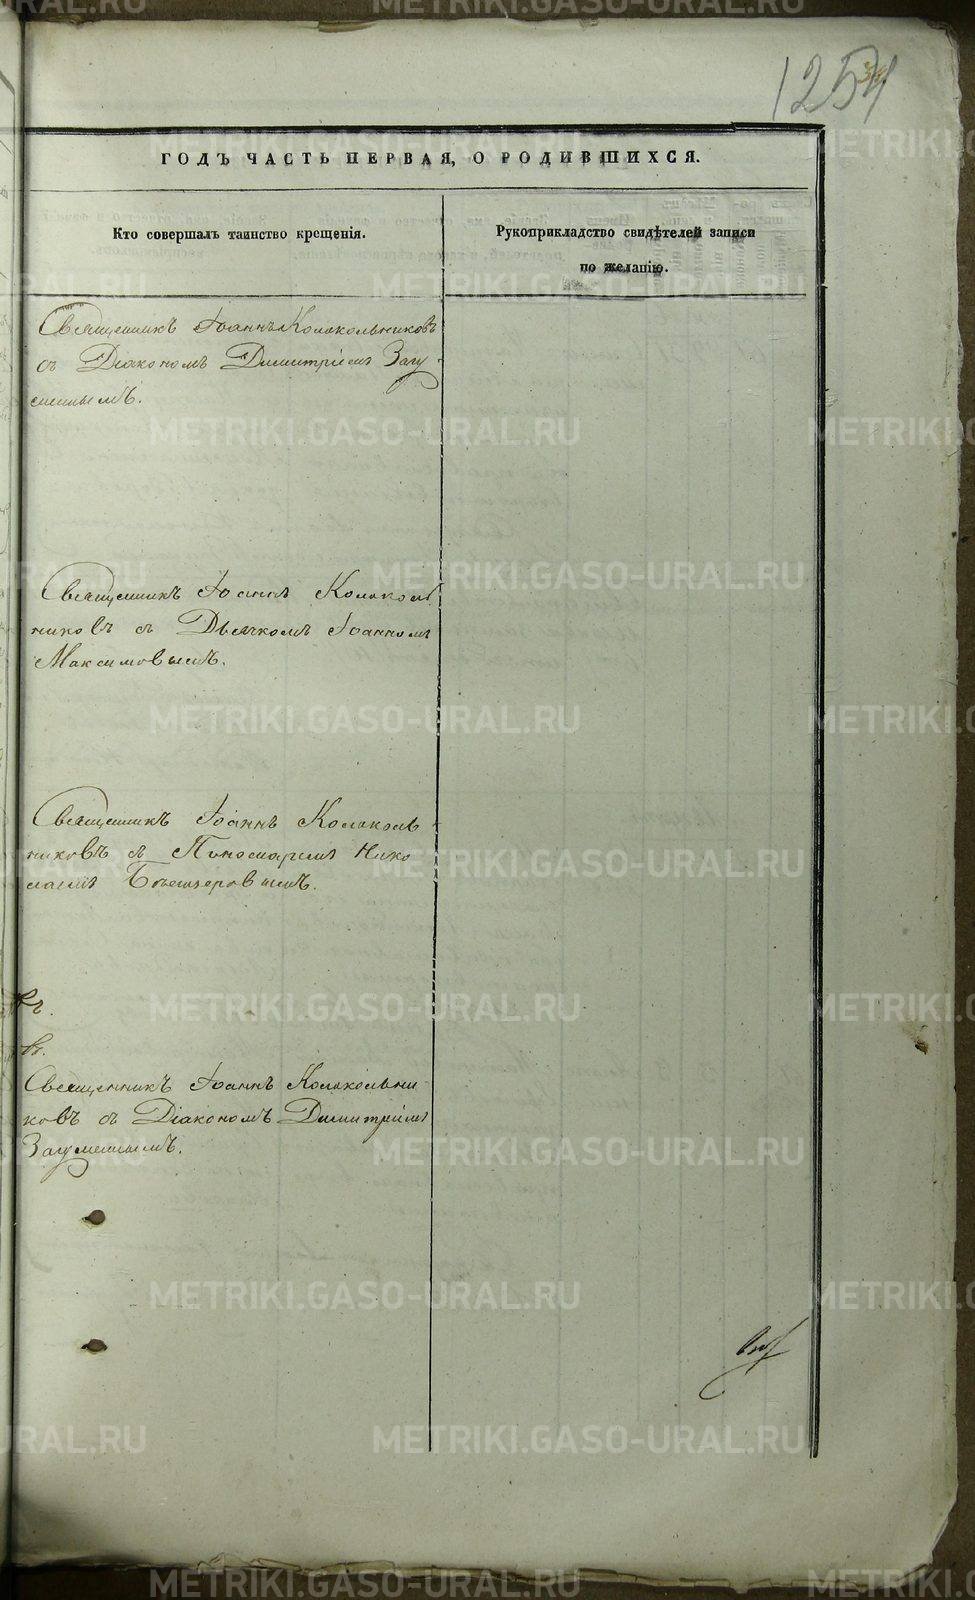 1254
ГОДЪ ЧАСТЬ ПЕРВАЯ, О РОДИВШИХСЯ.
Кто совершалъ таинство крещенія.
Рукоприкладство свидѣтелей записи
по желанію.
Священникъ Іоаннъ Колокольниковъ
съ Діакономъ Димитріемъ Загу
меннымъ.
Священникъ Іоаннъ Колоколь
никовъ съ Дьячкомъ Іоанномъ
Максимовымъ.
Священникъ Іоаннъ Колоколь
никовъ съ Пономаремъ Нико
лаемъ
Священникъ Іоаннъ Колокольни
ковъ съ Діакономъ Димитріемъ
Загуменнымъ.
METRIKI.GASO-URAL.RU